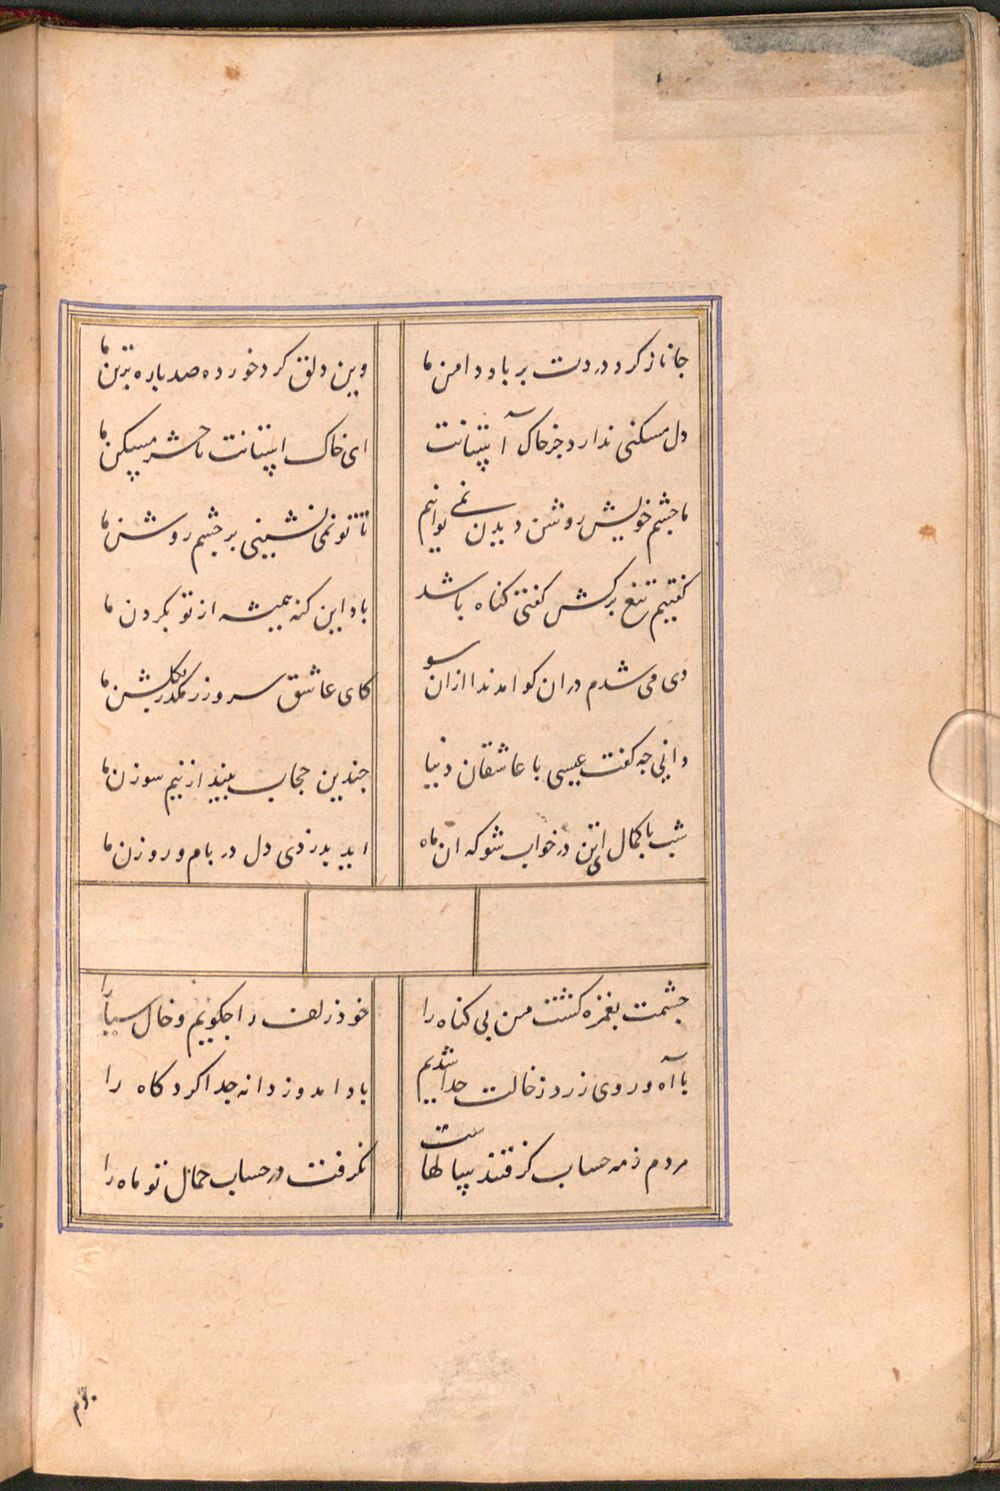 جانا ز کرد دردت بر باد دامن ما
وین دلق کرد خورده صد باره برتن ما
دل مسکنی ندارد جز خاک آستانت
ای خاک استانت تا حشر مسکن ما
ما جشم خویش روشن دیدن نمی توانیم
تا تو نمی نشینی بر جشم روشن ما
کفتیم تیغ برکش کفتی کناه باشد
باد این کنه همیشه از تو بکردن ما
دی می شدم در ان کو امد ندا از ان سو
کای عاشق سر و زر مکدر بکلشن ما
دانی جه کفت عیسی با عاشقان دنیا
جندین حجاب بینید از نیم سوزن ما
شب با کمال ای تن در خواب شو که ان ماه
اید بدزدی دل در بام و روزن ما
جشمت بغمزه کشت من بی کناه را
خود زلف را جکویم و خال سیاه را
با آه و روی زرد ز خالت جدا شدیم
باد امد و ز دانه جدا کرد کاه را
مردم ز مه حساب کرفتند سالهاست
نکرفت در حساب جمال تو ماه را